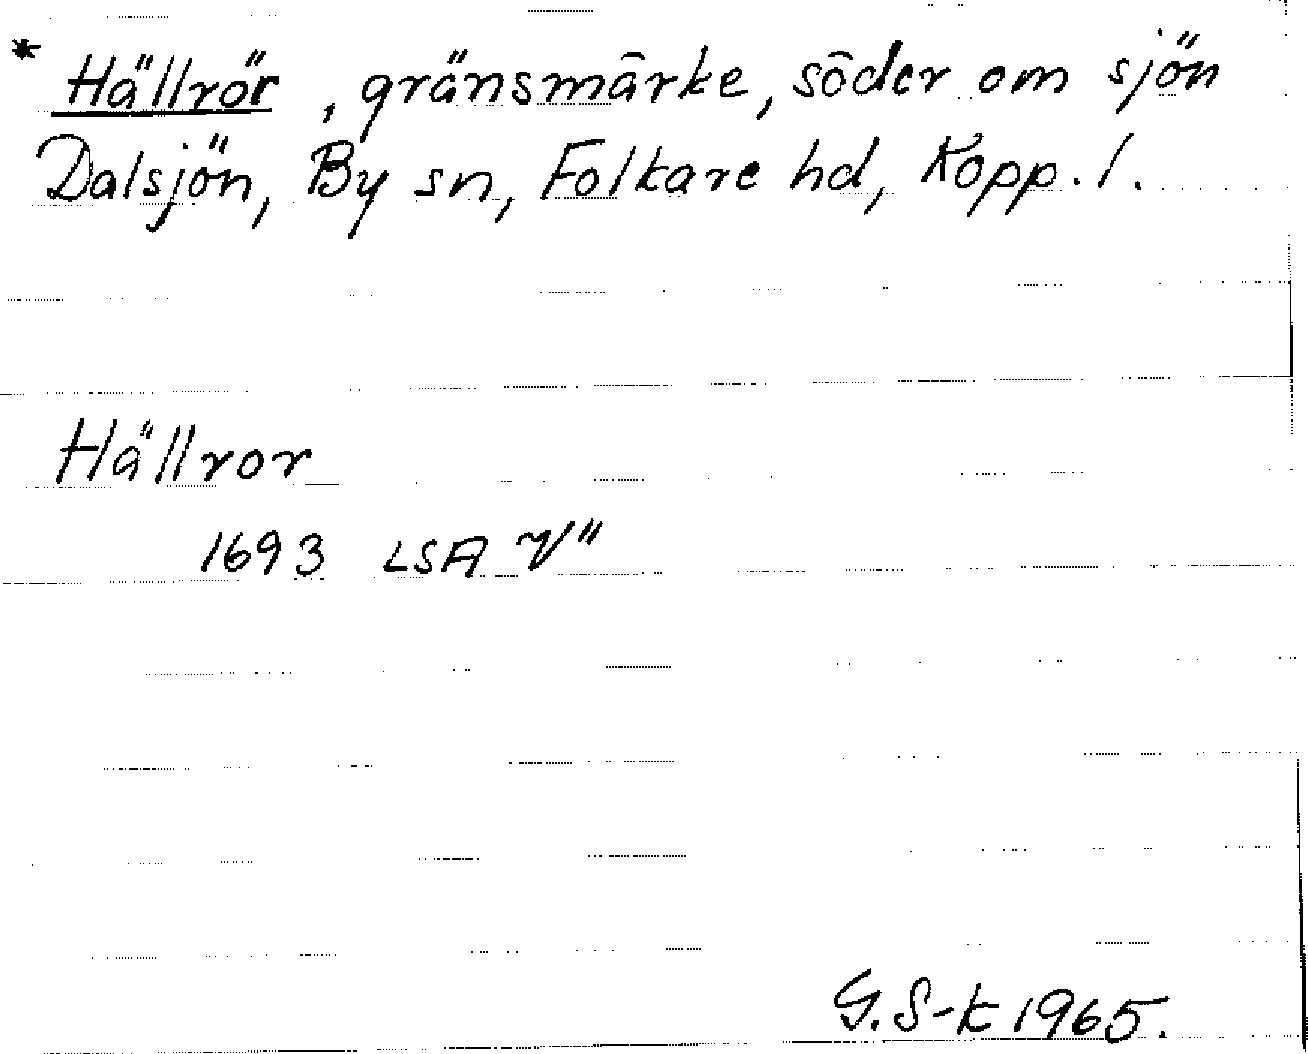 * Hällrör, gränsmärke, söder om sjön
Dalsjön, By sn, Folkare hd, Kopp. l.
Hällror
1693 LSA V"
G. S-k 1965.